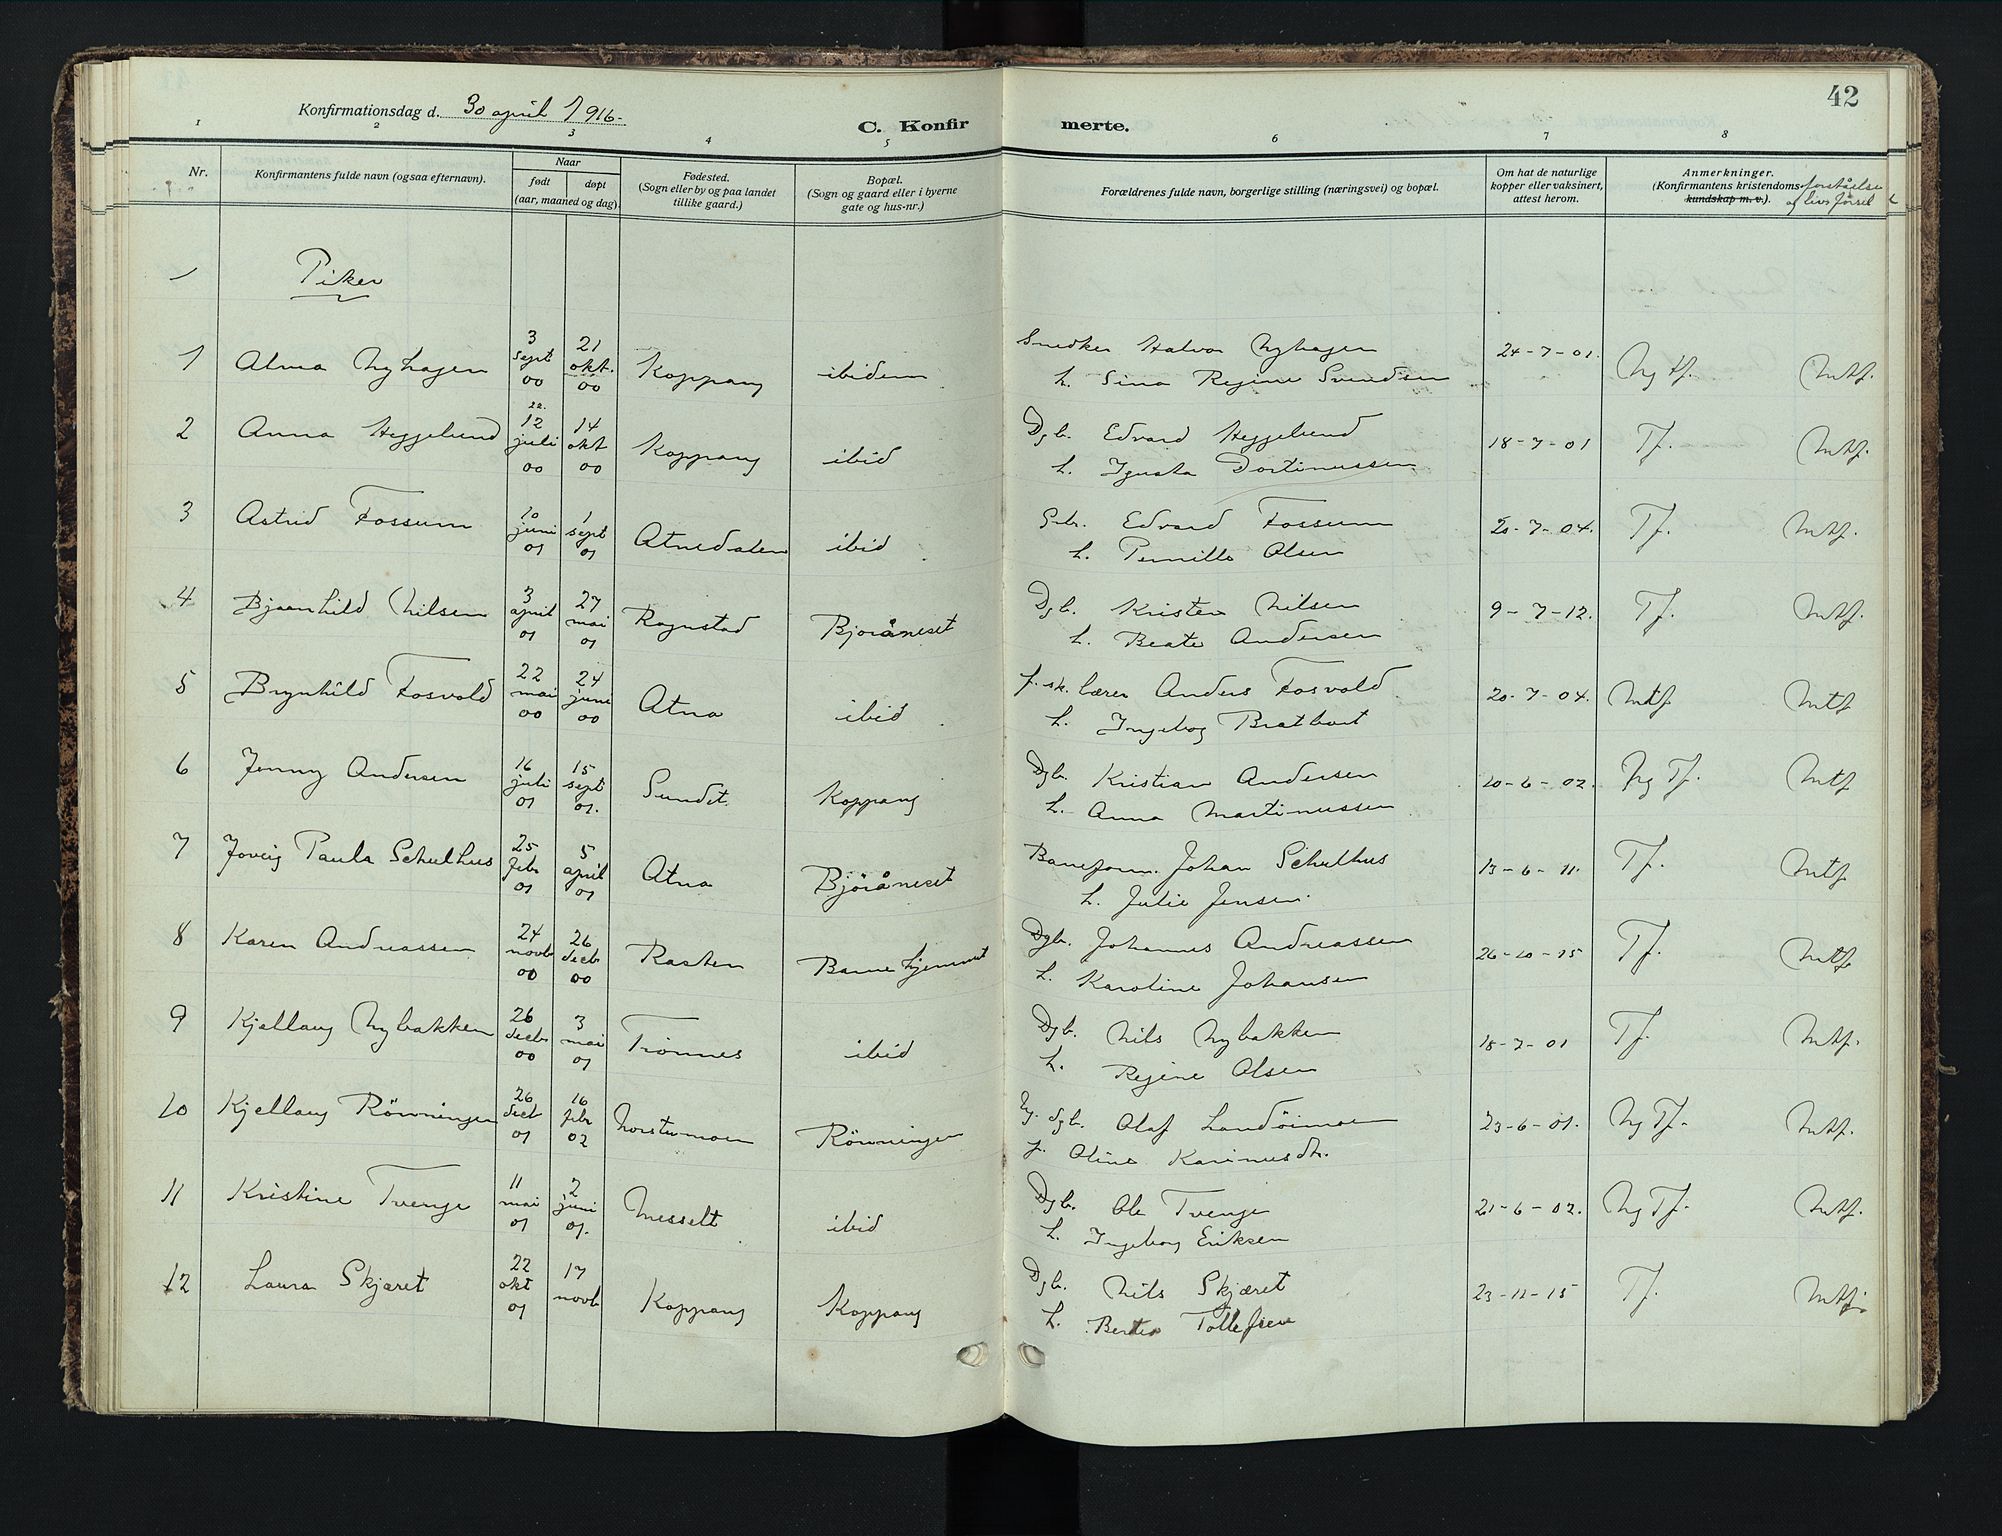 42
Konfirmationsdag d. 30 april 1916.
C. Konfirmerte.
1 2 3 4 5 6 7 8
Nr.
Konfirmantens fulde navn (ogsaa efternavn).
Naar
født døpt
(aar, maaned og dag).
Fødested.
(Sogn eller by og paa landet
tillike gaard.)
Bopæl.
(Sogn og gaard eller i byerne
gate og hus-nr.)
Forældrenes fulde navn, borgerlige stilling (næringsvei) og bopæl.
Om hat de naturlige
kopper eller vaksinert,
attest herom.
Anmerkninger.
(Konfirmantens kristendoms-forståelse
kundskap m. v.). og livsførsel
Piker
1 Alma Nyhagen 3 sept 00 21 okt. 00 Koppang ibidem Snedker Halvor Nyhagen 24-7-01. Ng tf. Mtf.
h. Sina Regine Svendsen
2 Anna Heggelund 22. 12 juli 00 14 okt 00 Koppang ibid Dgb. Edvard Heggelund 18-7-01 Tf. Mtf.
h. Martinussen
3 Astrid Fossum 10 juni 01 1 sept 01 Atnedalen ibid Gbr. Edvard Fossum 20-7-04. Tf. Mtf.
h. Pernille Olsen
4 Bjaanhild Nilsen 3 april 01 27 mai 01 Rognstad Bjøråneset Dgb. Kristen Nilsen 9-7-12. Tf. Mtf.
h. Beate Andersen
5 Brynhild Fosvold 22 mai 00 24 juni 00 Atna ibid f. sk. lærer Anders Fosvold 20-7-04. Mtf Mtf
h. Ingeborg Bratbart
6 Jenny Andersen 16 juli 01 15 sept 01. Sundet Koppang Dgb. Kristian Andersen 20-6-02. Ng Tf. Mtf
h. Anna Martinussen
7 Joveig Paula Schulhus 25 febr 01 5 april 01 Atna Bjøråneset Baneform. Johan Schulhus 13-6-11. Tf. Mtf
h. Julie Jensen
8 Karen Andreassen 24 novb 00 26 decb 00 Rasten Barnehjemmet Dgb. Johannes Andreassen 26-10-15 Tf. Mtf
h. Karoline Johansen
9 Kjellaug Nybakken 26 decb 00 3 mai 01 Trönnes ibid Dgb. Nils Nybakken 18-7-01 Tf. Mtf.
h. Regine Olsen
10 Kjellaug Rönningen 26 decb 01 16 febr 02 Norstumoen Rönningen Ug. dgb. Olaf Landöimoen 23-6-01. Ng Tf. Mtf.
p. Oline Karinusdtr.
11 Kristine Tvenge 11 mai 01 2 juni 01. Messelt ibid Dgb. Ole Tvenge 21-6-02. Ng Tf. Mtf.
h. Ingeborg Eriksen
12 Laura Skjæret 22 okt 01 17 novb Koppang Koppang Dgb. Nils Skjæret 23-11-15 Tf. Mtf.
h. Tollefsen